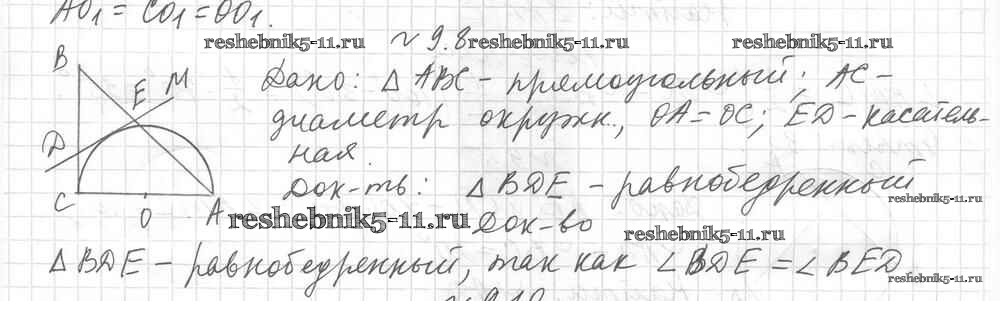 AO₁ = CO₁ = OO₁.
reshebnik5-11.ru
№ 9.8
reshebnik5-11.ru
reshebnik5-11.ru
B
E
M
D
C
O
A
Дано: △ ABC – прямоугольный; AC –
диаметр окружн., OA = OC; ED – касатель-
ная.
Док-ть: △ BDE – равнобедренный
reshebnik5-11.ru
reshebnik5-11.ru
Док-во
reshebnik5-11.ru
△ BDE – равнобедренный, так как ∠ BDE = ∠ BED
reshebnik5-11.ru